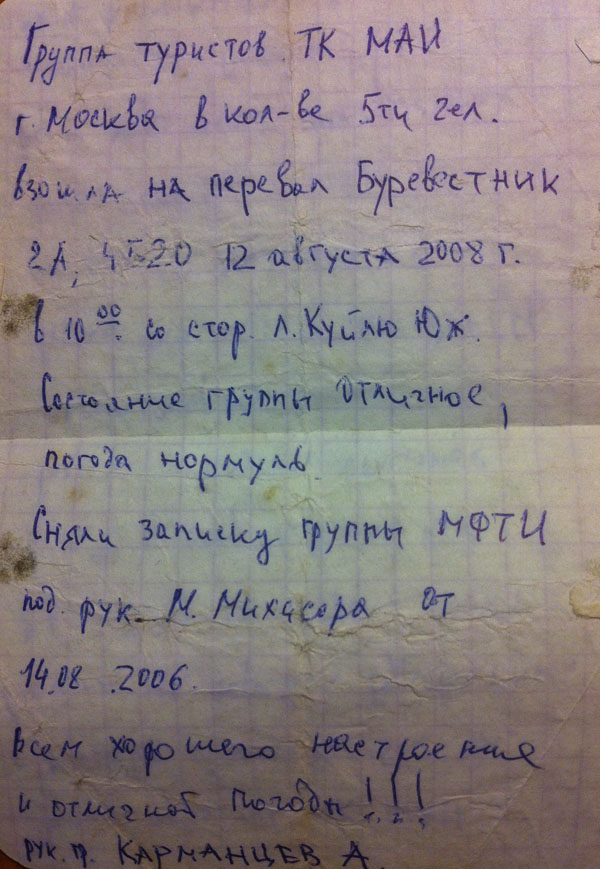 Группа туристов ТК МАИ
г. Москва в кол-ве 5ти чел.
взошла на перевал Буревестник
2А, 4120 12 августа 2008 г.
в 10 00 со стор. л. Куйлю Юж.
Состояние группы отличное,
погода нормуль.
Сняли записку группы МФТИ
под. рук. М. от
14.08.2006.
Всем хорошего настроения
и отличной погоды!!!
рук. гр. КАРМАНЦЕВ А.